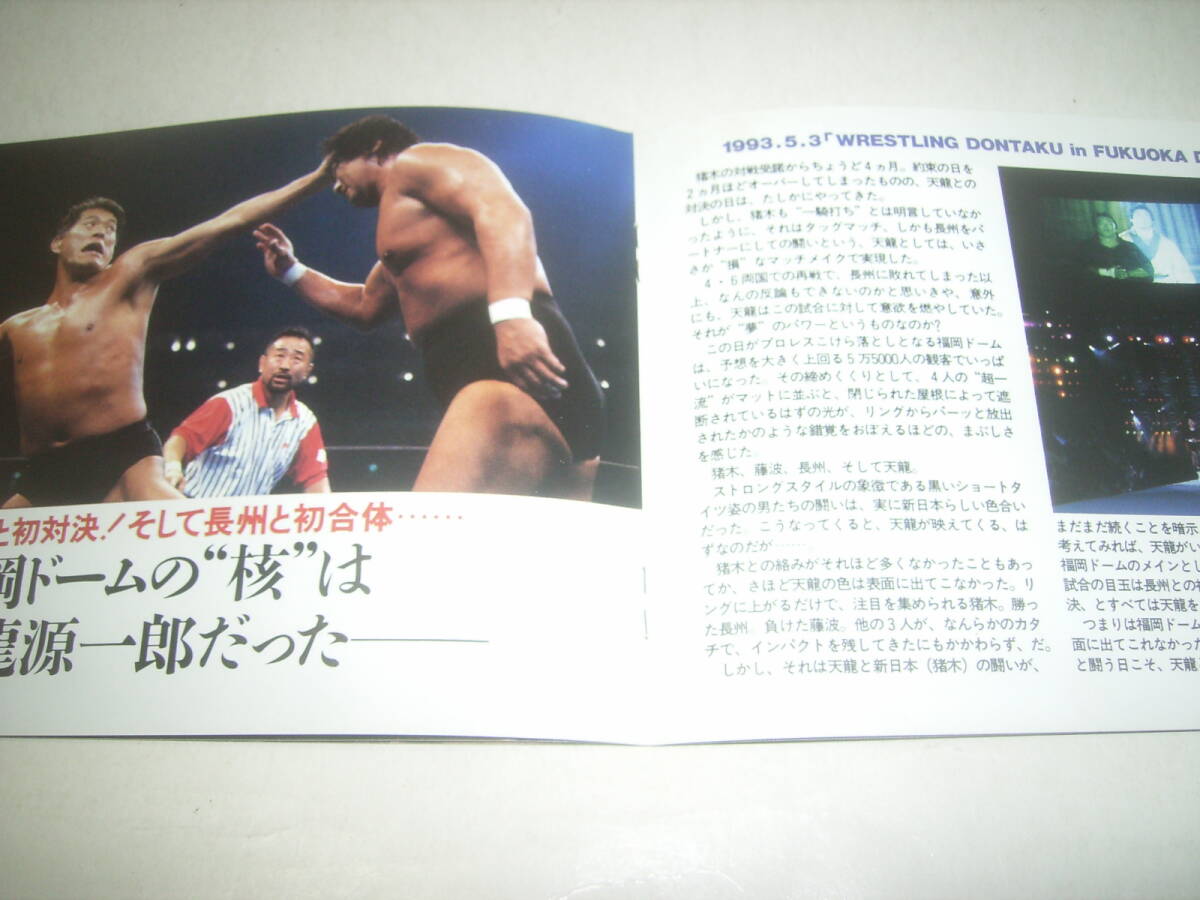 と初対決!そして長州と初合体……
岡ドームの“核”は
龍源一郎だった——
1993.5.3「WRESTLING DONTAKU in FUKUOKA D
猪木の対戦受諾からちょうど4ヵ月。約束の日を
2ヵ月ほどオーバーしてしまったものの、天龍との
対決の日は、たしかにやってきた。
しかし、猪木も“一騎打ち”とは明言していなか
ったように、それはタッグマッチ、しかも長州をパ
ートナーにしての闘いという、天龍としては、いさ
さか“損”なマッチメイクで実現した。
4・6両国での再戦で、長州に敗れてしまった以
上、なんの反論もできないのかと思いきや、意外
にも、天龍はこの試合に対して意欲を燃やしていた。
それが“夢”のパワーというものなのか?
この日がプロレスこけら落としとなる福岡ドーム
は、予想を大きく上回る5万5000人の観客でいっぱ
いになった。その締めくくりとして、4人の“超一
流”がマットに並ぶと、閉じられた屋根によって遮
断されているはずの光が、リングからパーッと放出
されたかのような錯覚をおぼえるほどの、まぶしさ
を感じた。
猪木、藤波、長州、そして天龍。
ストロングスタイルの象徴である黒いショートタ
イツ姿の男たちの闘いは、実に新日本らしい色合い
だった。こうなってくると、天龍が映えてくる、は
ずなのだが……。
猪木との絡みがそれほど多くなかったこともあっ
てか、さほど天龍の色は表面に出てこなかった。リ
ングに上がるだけで、注目を集められる猪木。勝っ
た長州。負けた藤波。他の3人が、なんらかのカタ
チで、インパクトを残してきたにもかかわらず、だ。
しかし、それは天龍と新日本(猪木)の闘いが、
まだまだ続くことを暗示
考えてみれば、天龍がい
福岡ドームのメインとし
試合の目玉は長州との初
決、とすべては天龍を
つまりは福岡ドーム
面に出てこれなかった
と闘う日こそ、天龍